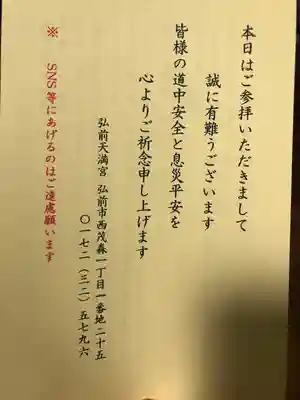 本日はご参拝いただきまして
誠に有難うございます
皆様の道中安全と息災平安を
心よりご祈念申し上げます
弘前天満宮 弘前市西茂森一丁目一番地二十五
〇一七二(三二)五七九六
※ SNS等にあげるのはご遠慮願います